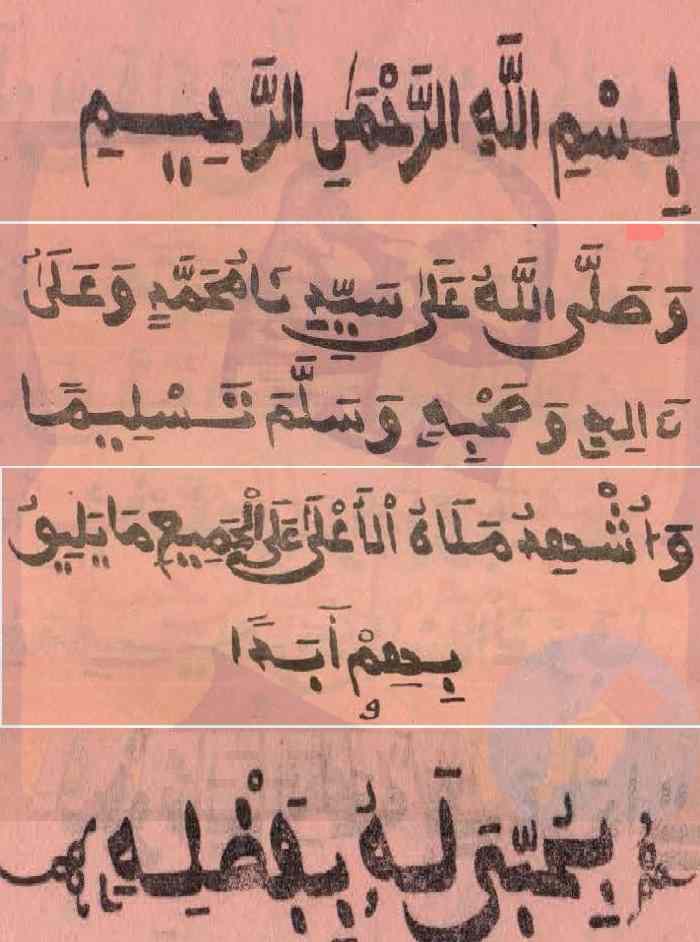 بِسْمِ اللَّهِ الرَّحْمَٰنِ الرَّحِيمِ
وَصَلَّى اللَّهُ عَلَىٰ سَيِّدِنَا مُحَمَّدٍ وَعَلَىٰ
ءَالِهِ وَصَحْبِهِ وَسَلَّمَ تَسْلِيمًا
صَلَاةُ الْأَعْلَىٰ عَلَى الْجَمِيعِ مَا يَلِيقُ
بِهِمْ أَبَدًا
لَهُ